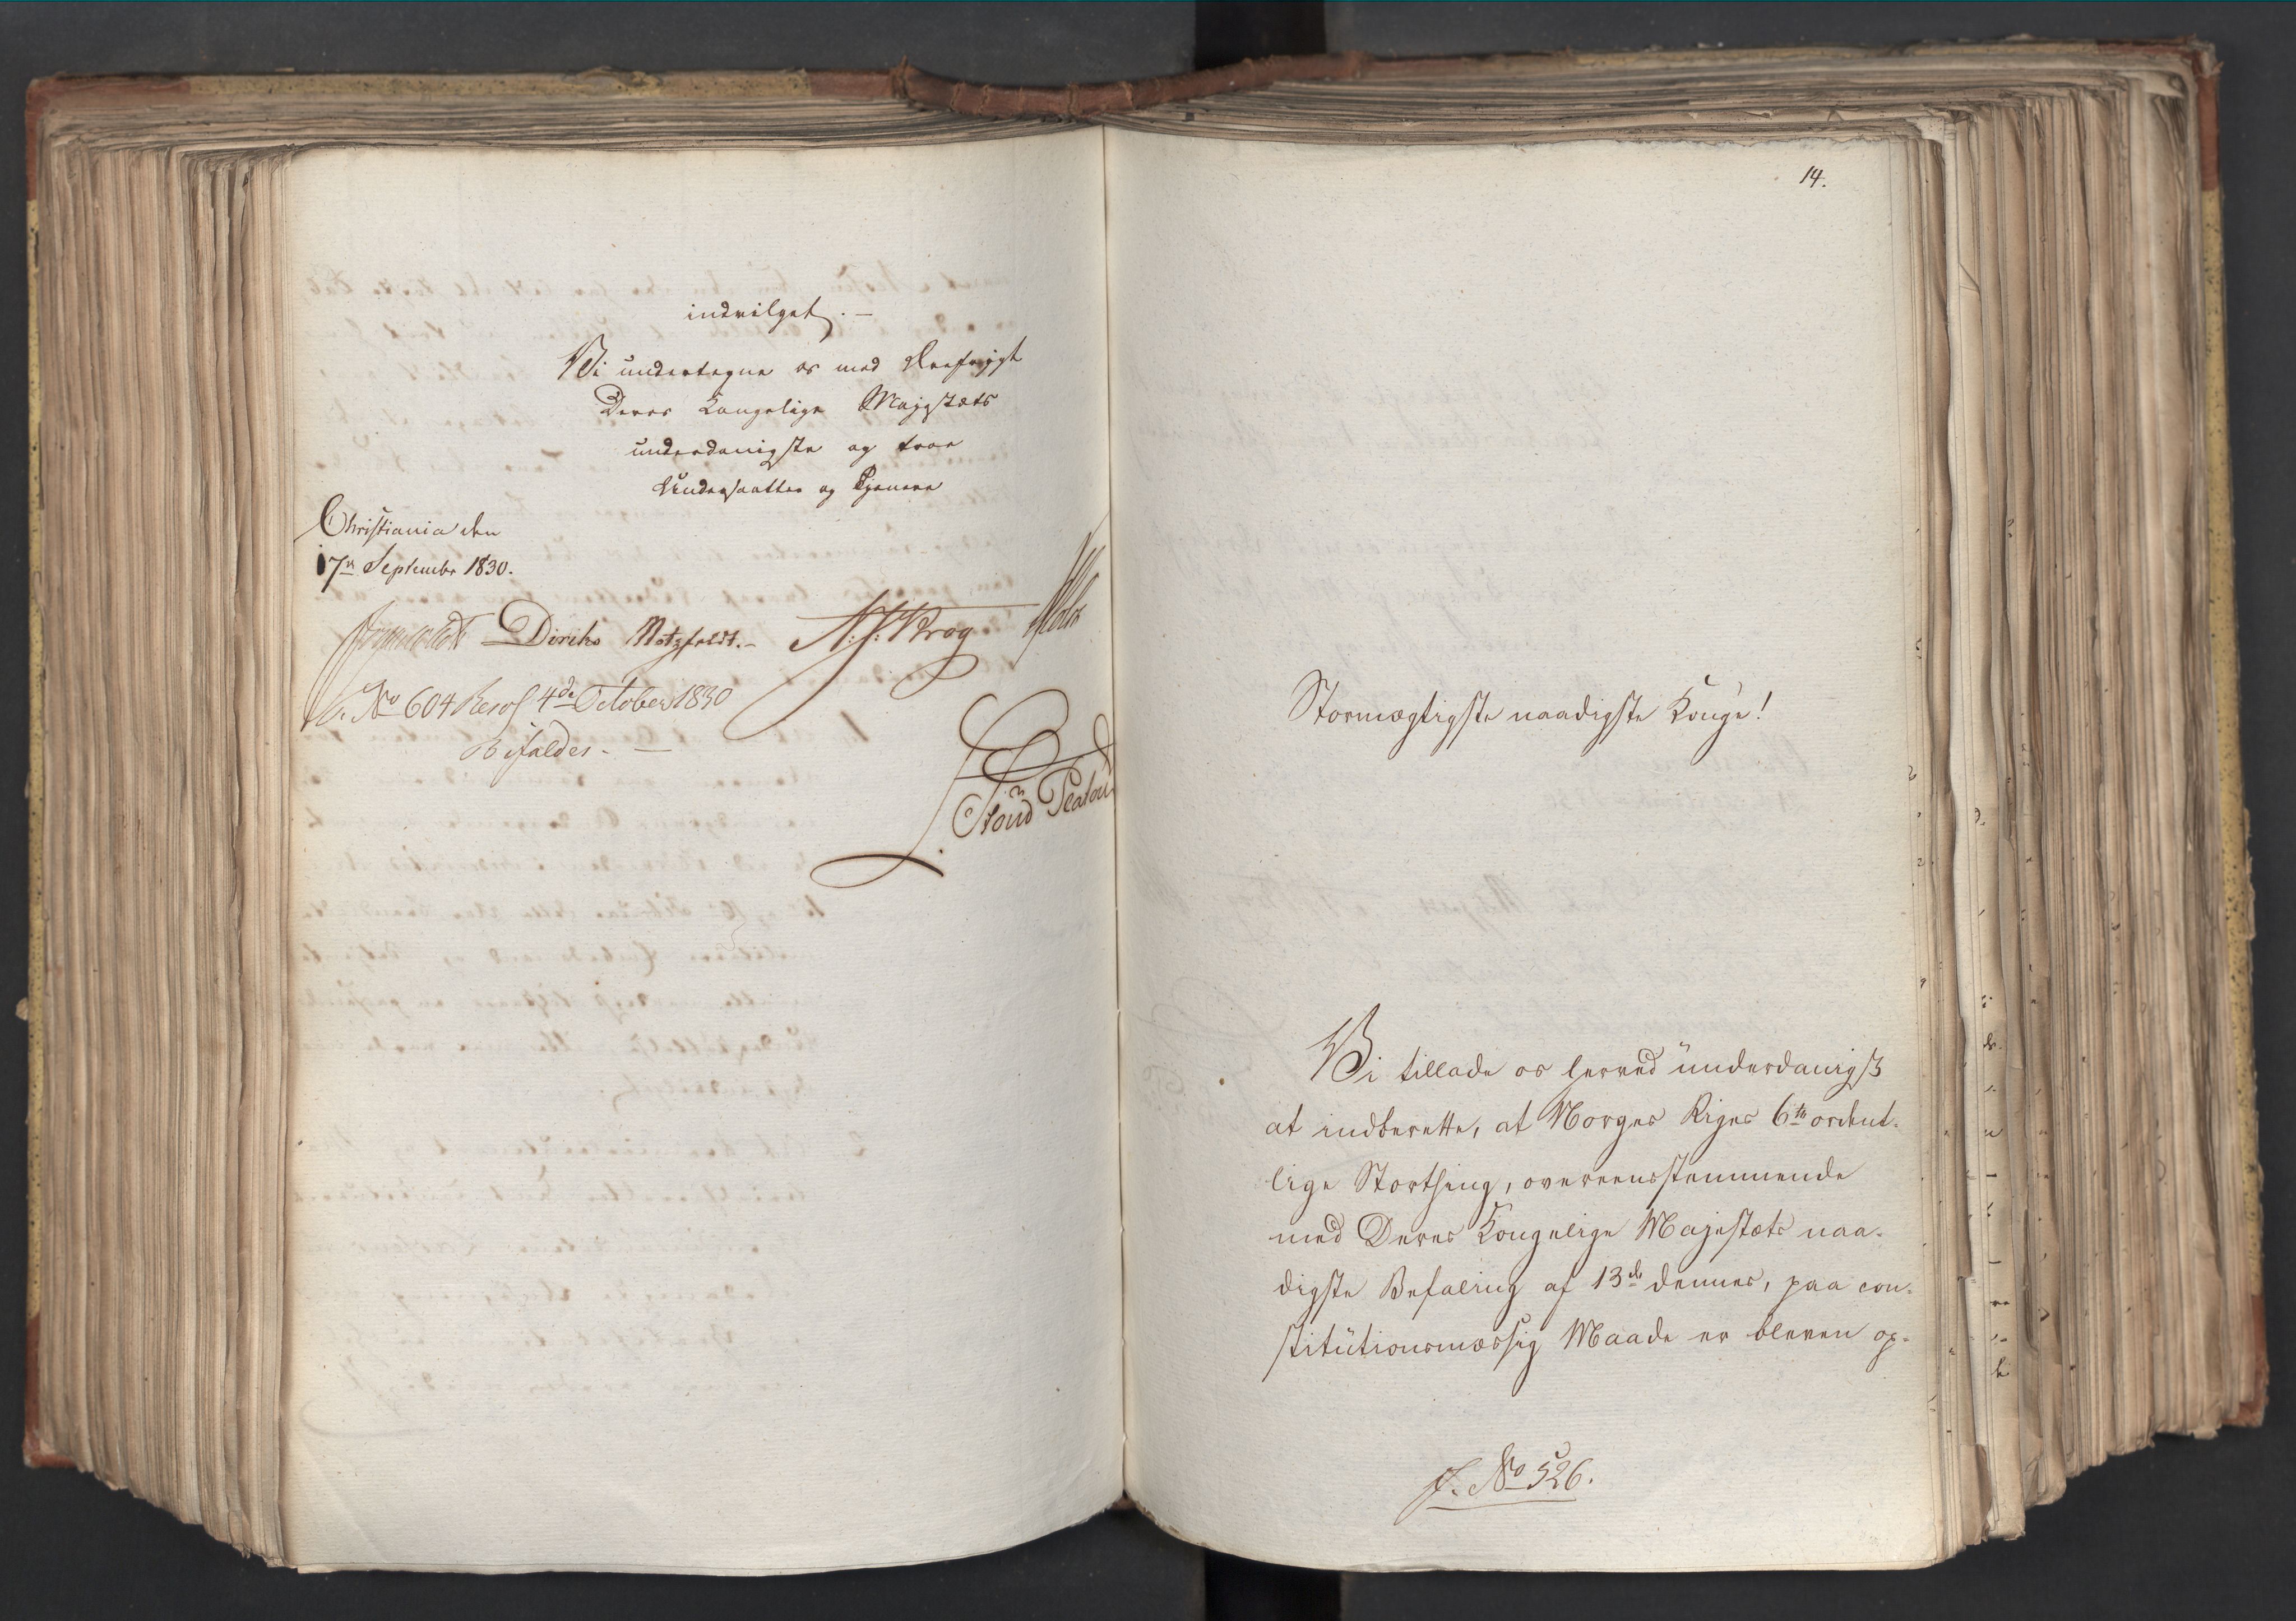 indvilget. —
Vi undertegne os med Ærefrygt
Deres Kongelige Majestæts
underdanigste og troe
Undersaatter og Tjenere
Christiania den
17n September 1830.
Diriks Motzfeldt. – N. J. Krog Holst
No 604 Resol 4de October 1830
Bifaldes. —
14.
Stormægtigste naadigste Konge!
Vi tillade os herved underdanigst
at indberette, at Norges Riges 6te ordent-
lige Storthing, overeensstemmende
med Deres Kongelige Majestæts naa-
digste Befaling af 13de dennes, paa con-
stitutionsmæssig Maade er bleven op-
J. No 526.